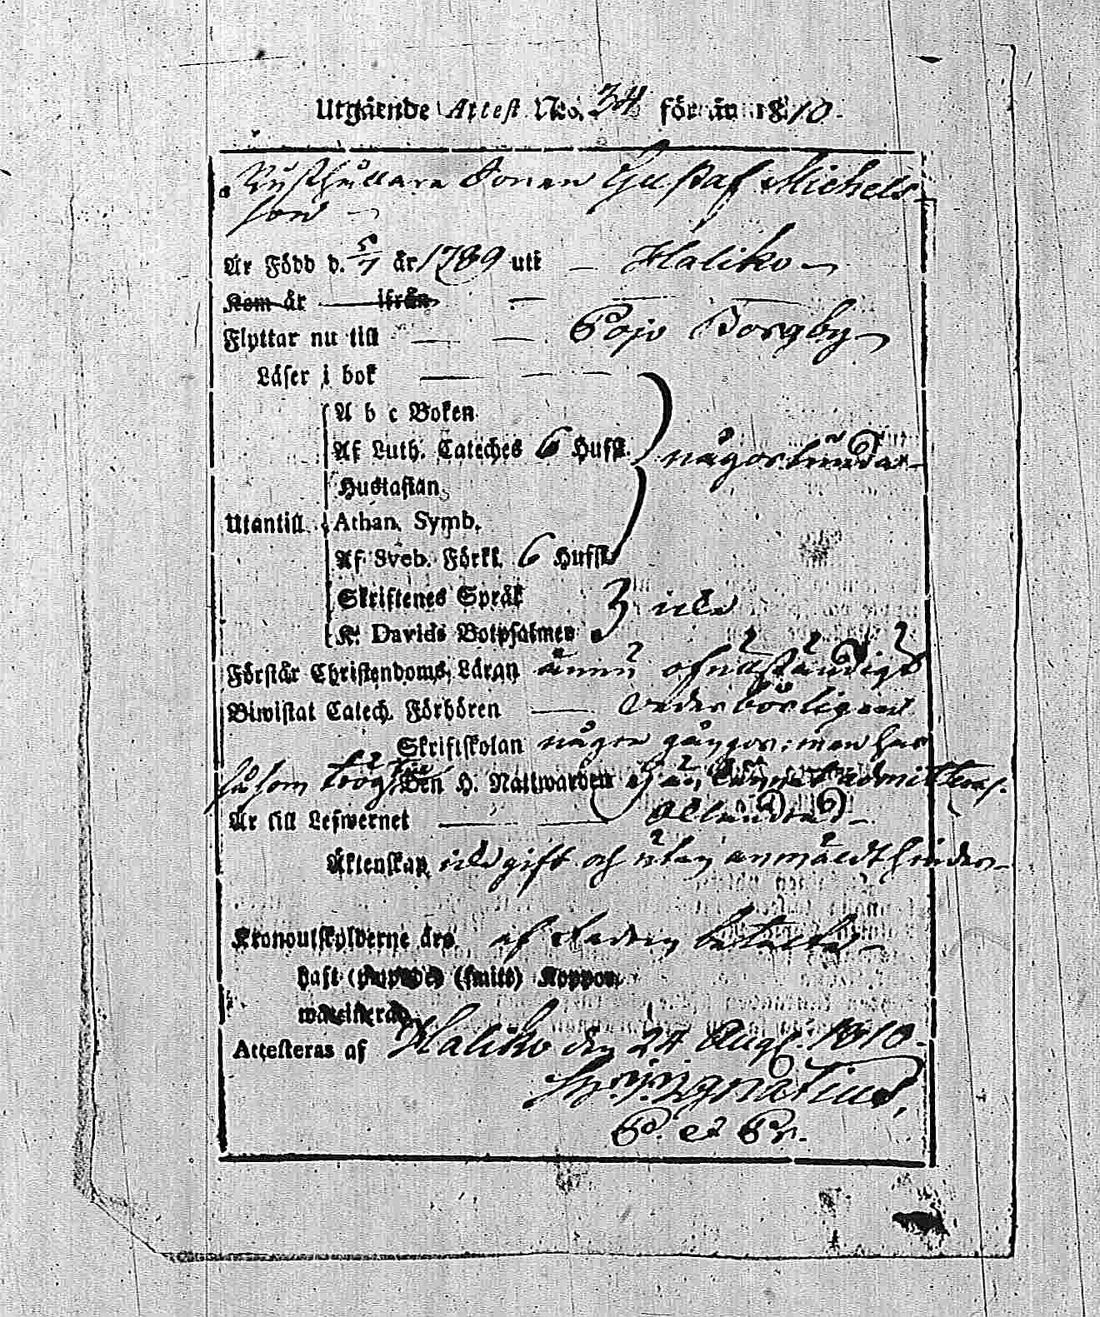 Utgående Attest No. 34 för år 1810.
Rusthållare Sonen Gustaf Michels-
son
Är Född d. 5/7 år 1789 uti Haliko
Kom år ifrån
Flyttar nu till Pojo Borgby
Läser i bok
A b c Boken
Af Luth. Cateches 6 Hufst. någorlunda
Hustaflan
Utantill Athan. Symb.
Af Sveb. Förkl. 6 Hufst.
Skriftenes Språk
K. Davids Botpsalmer } illa
Förstår Christendoms Läran ännu ofullständigt
Biwistat Catech. Förhören vederbörligen
Skriftskolan några gånger: men har
såsom trög till Den H. Nattwarden ej än kunnat admitteras.
Är till Lefwernet oklandrad
Äktenskap ledig och utan anmäldt hinder
Kronoutskylderne äro af Fadren betalta
haft (smitt) Koppor
waccinerad
Attesteras af Haliko den 24 Aug. 1810.
Ignatius,
P. et Pr.